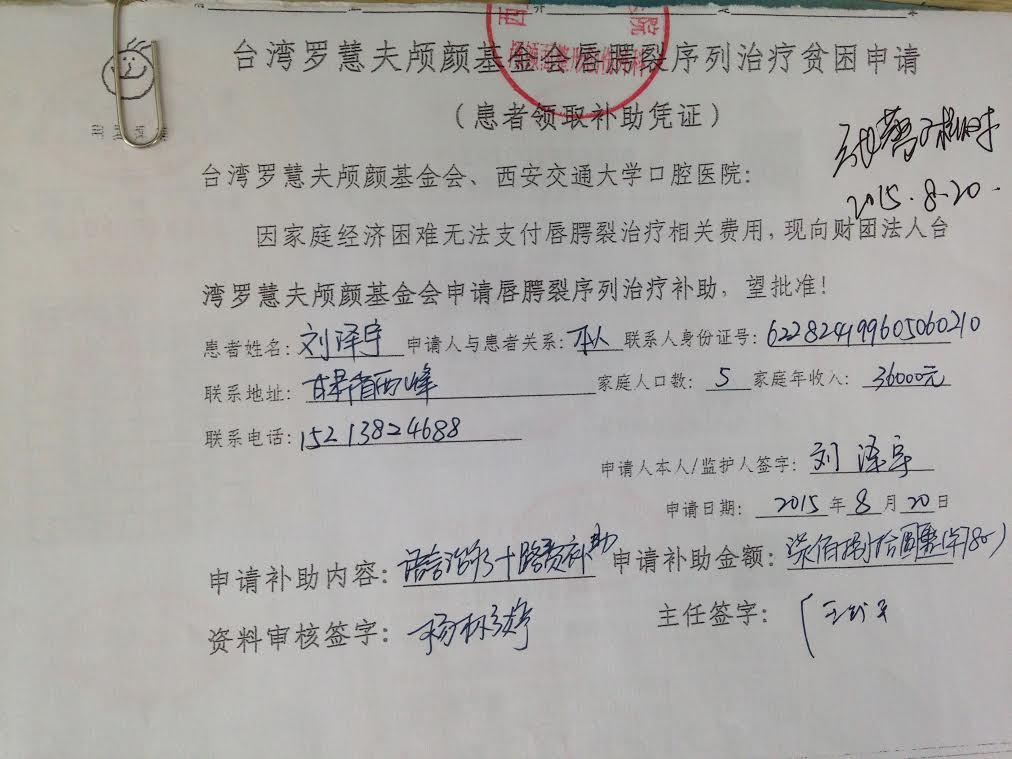 台湾罗慧夫颅颜基金会唇腭裂序列治疗贫困申请
（患者领取补助凭证）
2015.8.20.
台湾罗慧夫颅颜基金会、西安交通大学口腔医院：
因家庭经济困难无法支付唇腭裂治疗相关费用，现向财团法人台
湾罗慧夫颅颜基金会申请唇腭裂序列治疗补助，望批准！
患者姓名：刘泽宇 申请人与患者关系：本人 联系人身份证号：622824199605060210
联系地址：甘肃省西峰 家庭人口数：5 家庭年收入：36000元
联系电话：15213824688
申请人本人/监护人签字：刘泽宇
申请日期：2015年8月20日
申请补助内容：语言治疗+路费补助 申请补助金额：柒佰捌拾圆整(¥780)
资料审核签字： 主任签字：